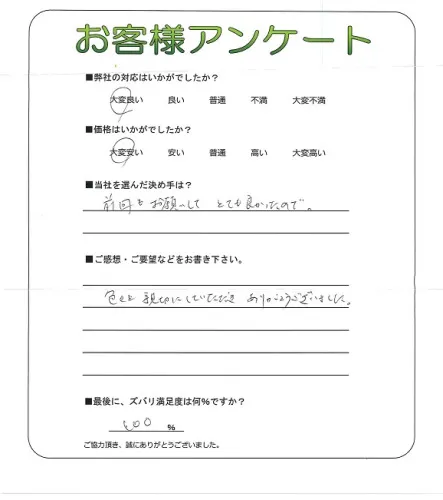 お客様アンケート
■弊社の対応はいかがでしたか？
大変良い 良い 普通 不満 大変不満
■価格はいかがでしたか？
大変安い 安い 普通 高い 大変高い
■当社を選んだ決め手は？
前回もお願いして とても良かったので。
■ご感想・ご要望などをお書き下さい。
色々と親切にしていただき ありがとうございました。
■最後に、ズバリ満足度は何%ですか？
100 %
ご協力頂き、誠にありがとうございました。